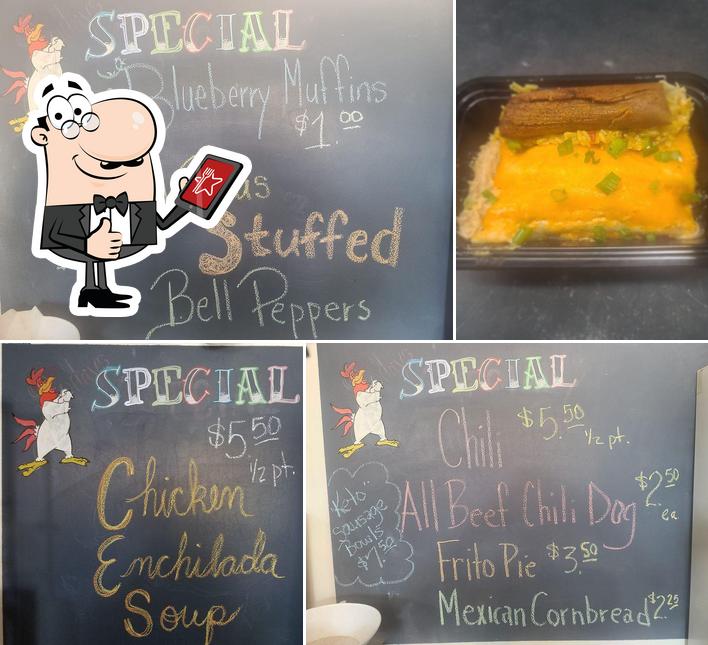 SPECIAL
Blueberry Muffins
$1.00
Stuffed
Bell Peppers
SPECIAL
$5.50
1/2 pt.
Chicken
Enchilada
Soup
SPECIAL
Chili $5.50 1/2 pt.
All Beef Chili Dog $2.50 ea
"Keto"
Sausage
Bowls
Frito Pie $3.50
Mexican Cornbread $2.25